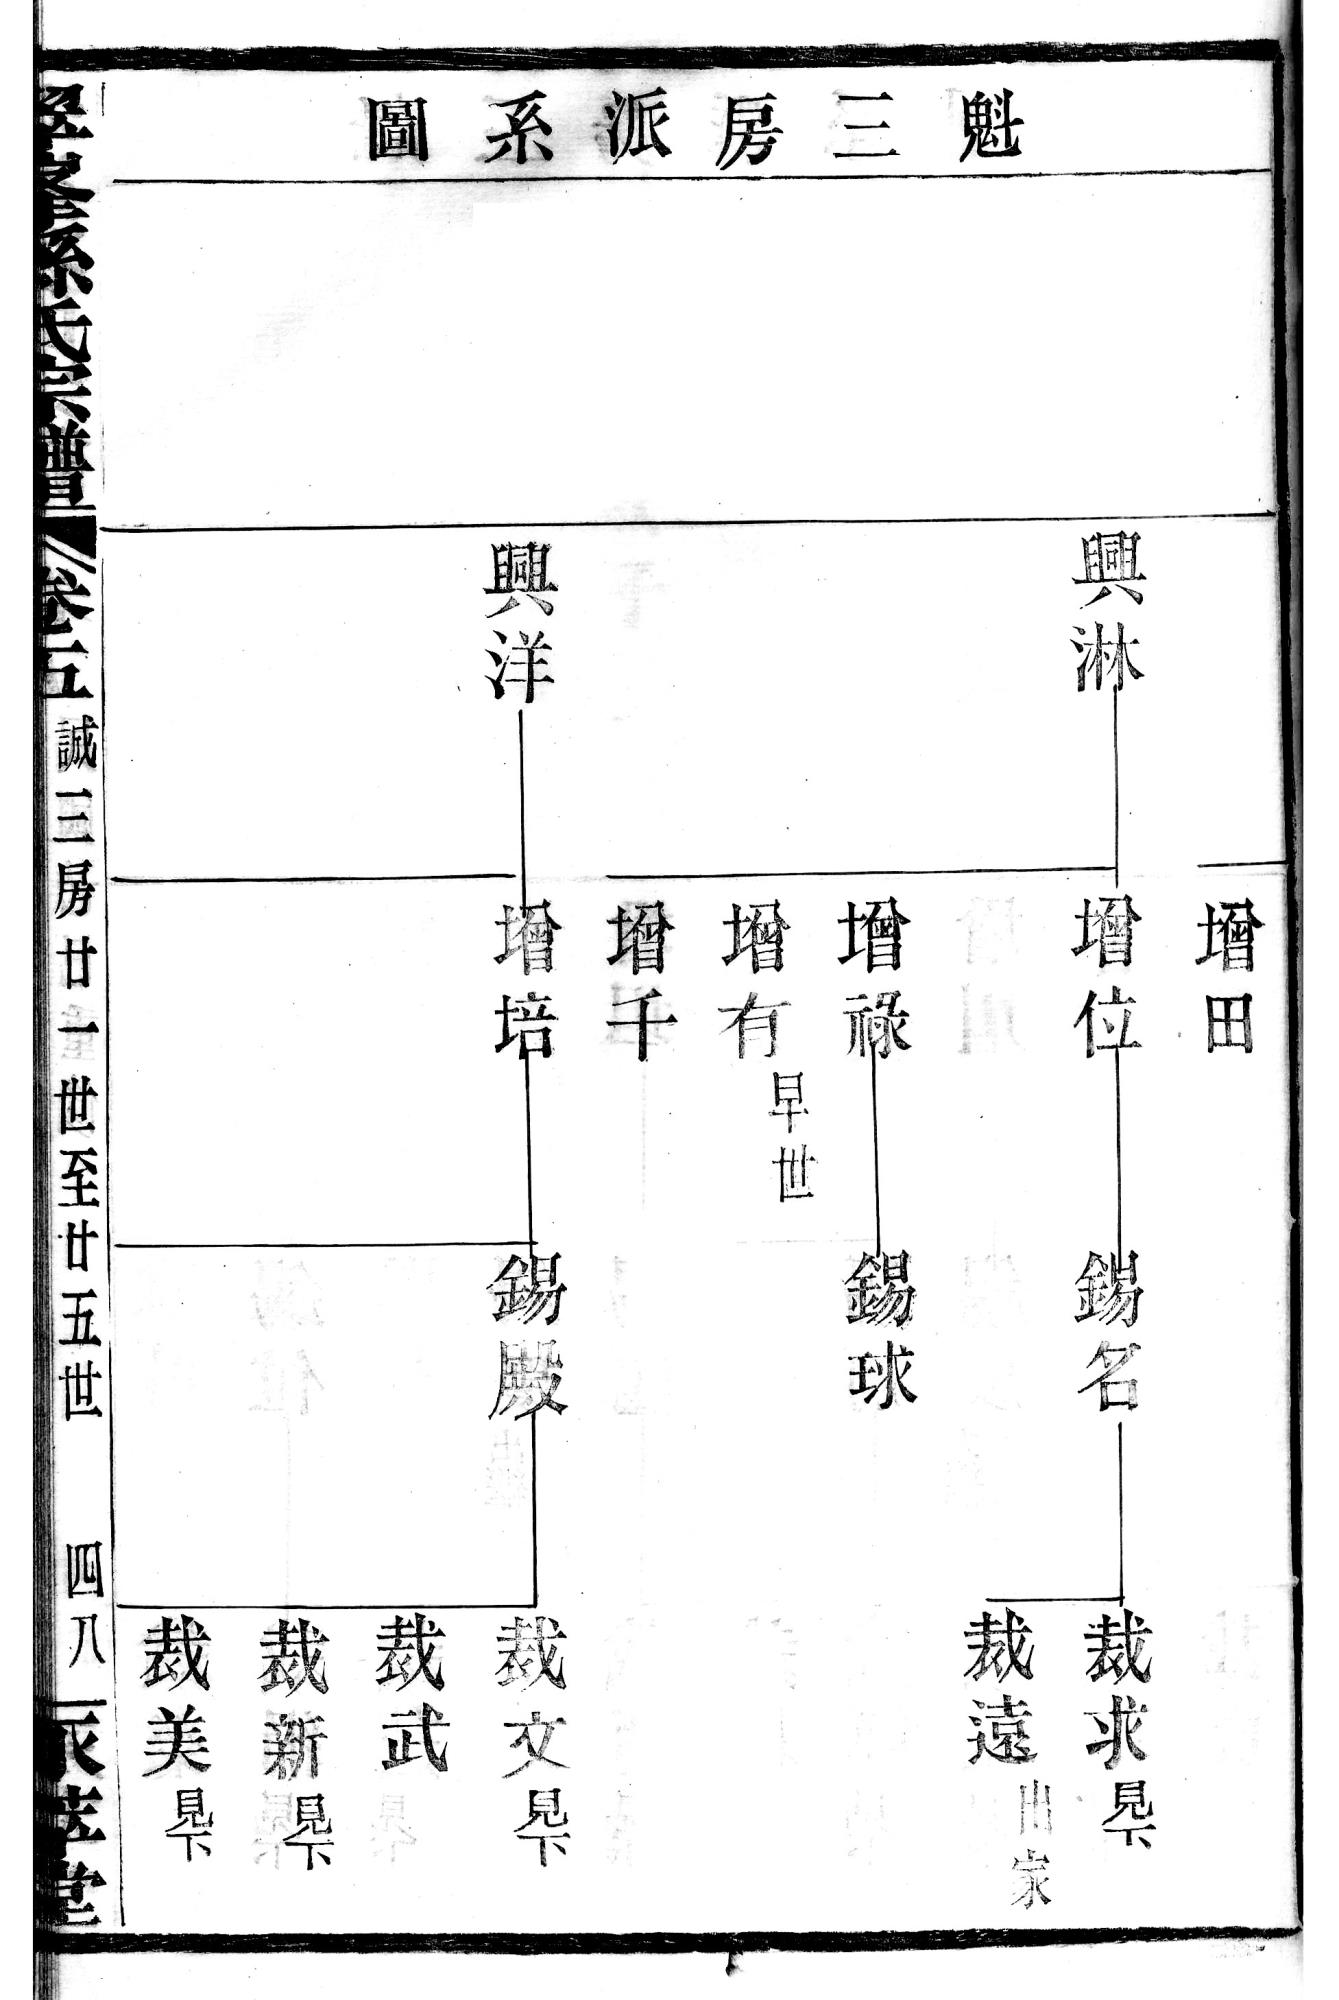 魁三房派系圖
興淋
興洋
增田
增位
增祿
增有
早世
增千
增培
錫名
錫球
錫殿
裁求
見下
裁遠
出家
裁文
見下
裁武
裁新
見下
裁美
見下
孫氏宗譜
卷五
誠三房廿一世至廿五世
四八
萃堂